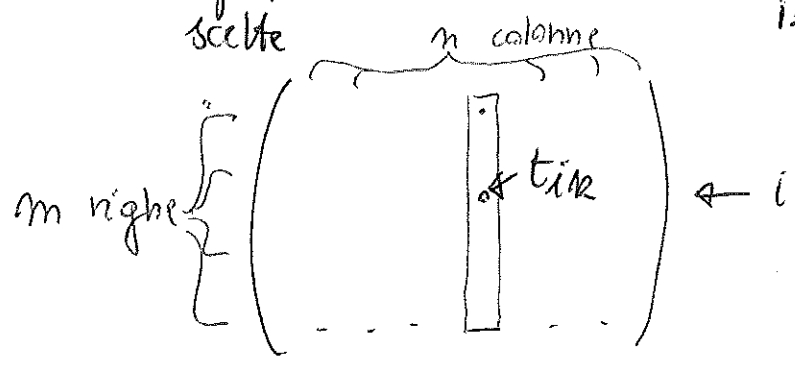 scelte
n colonne
m righe
tik
i